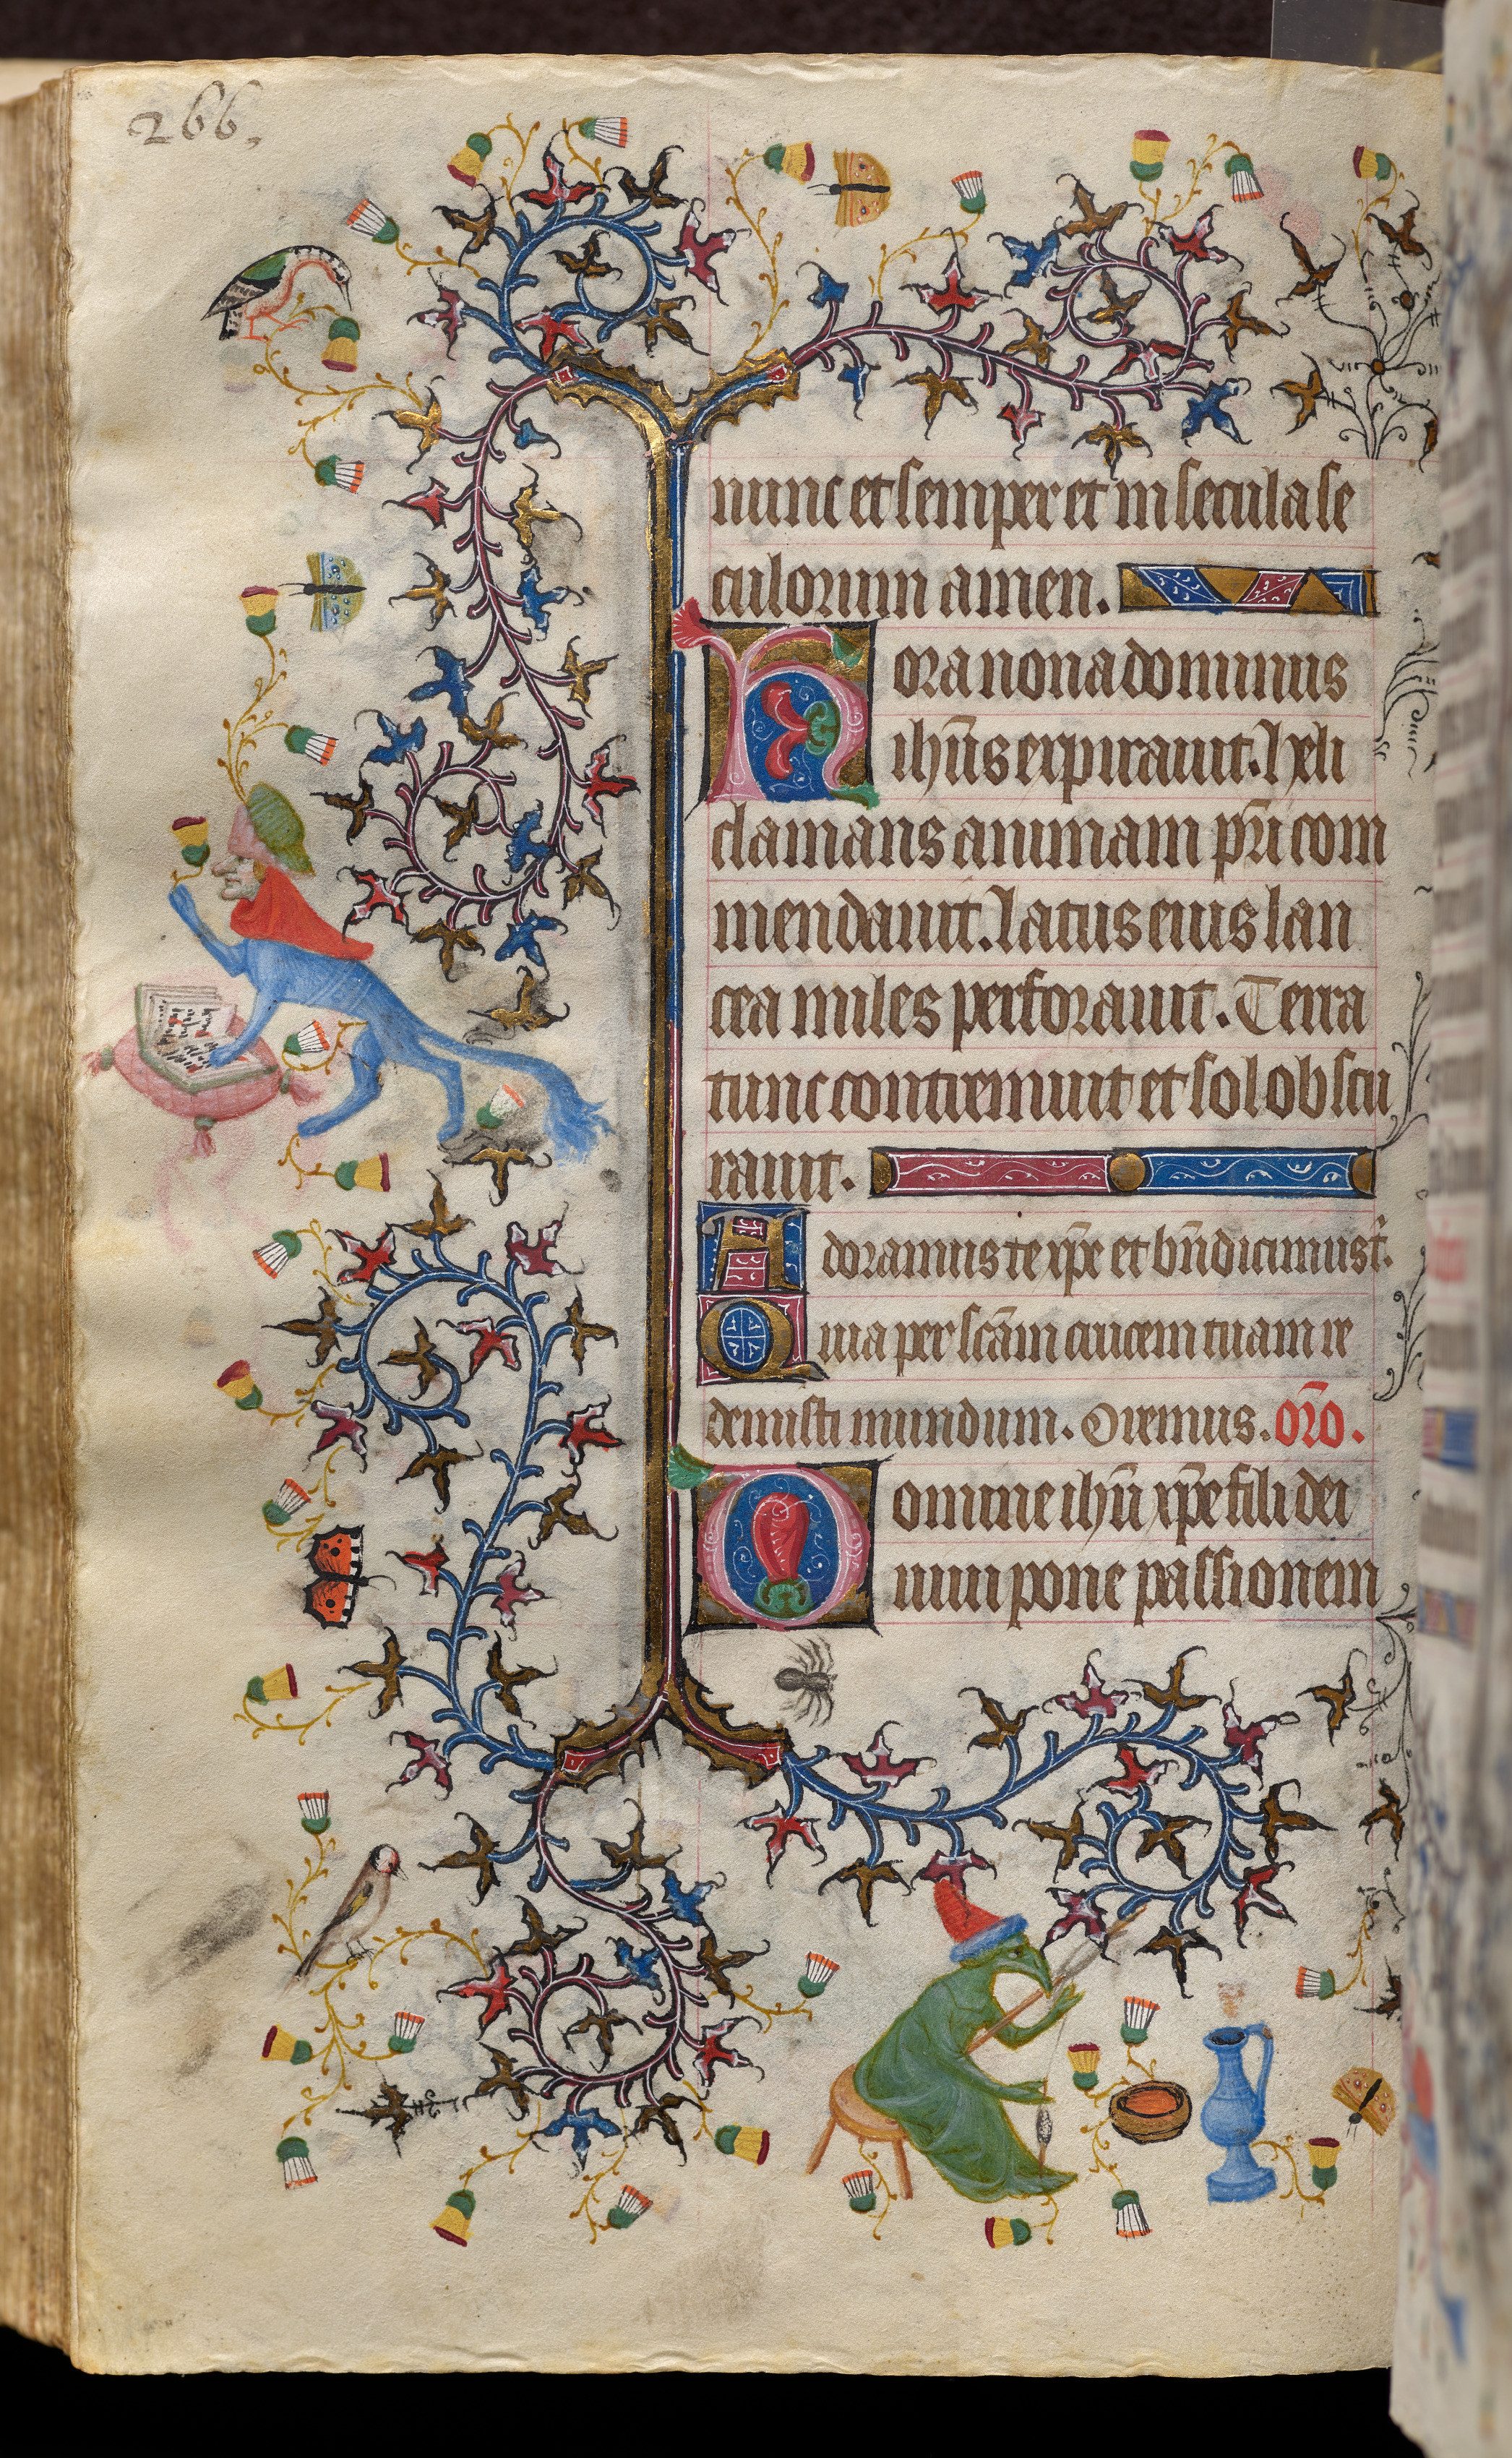 266.
nunc et semper et in secula se
culorum amen.
Hora nona dominus
ihūs expirauit. heli
clamans animam pr̄i com
mendauit. latus eius lan
cea miles perforauit. Terra
tunc contremuit et sol obscu
rauit.
Adoramus te xp̄e et bn̄dicimus t̄.
Quia per sc̄am crucem tuam re
demisti mundum. Oremus. or̄o.
Domine ihū xp̄e fili dei
uiui pone passionem